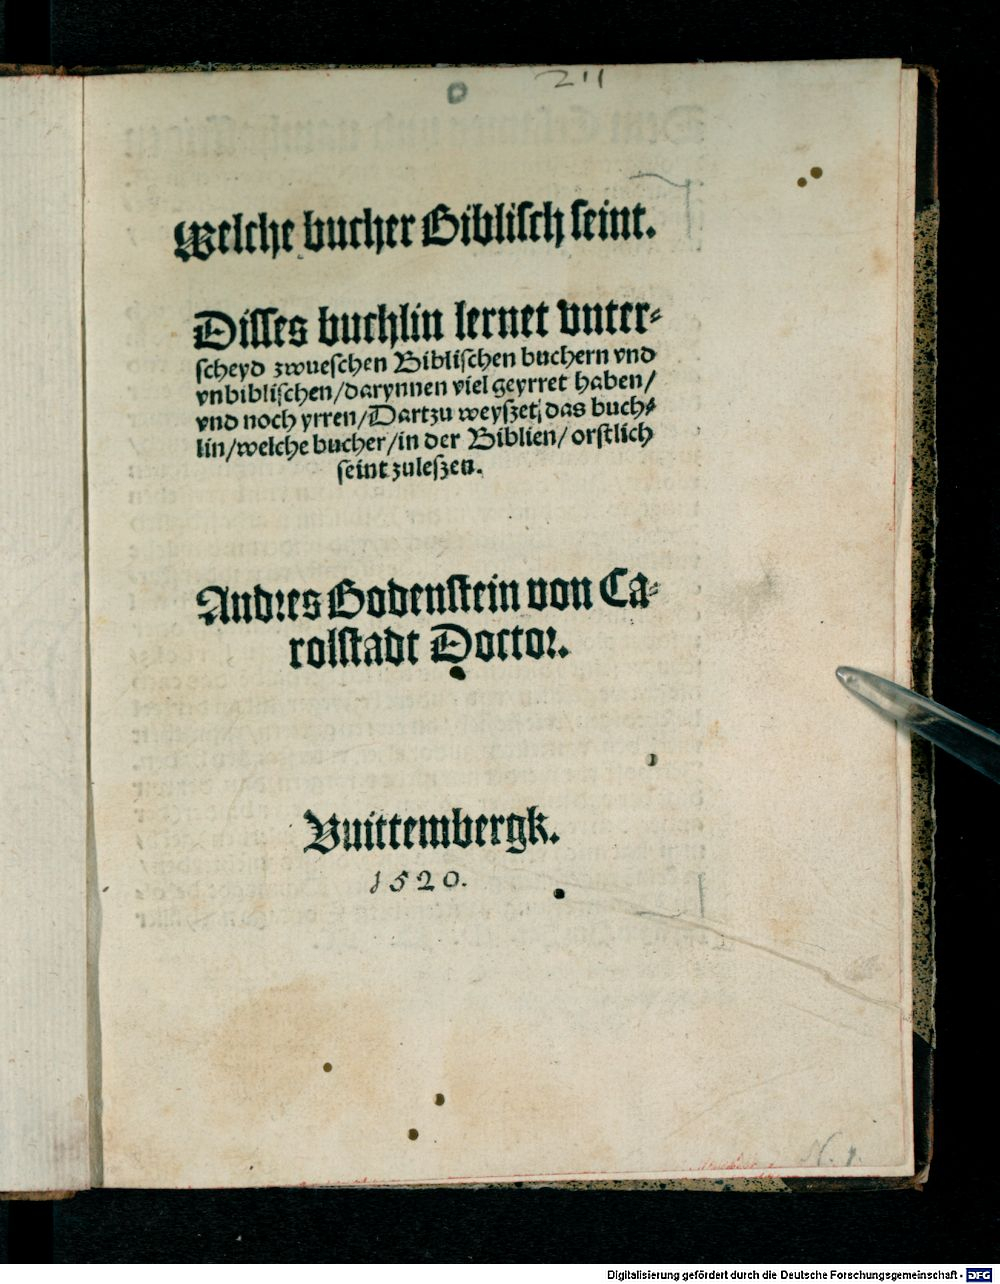 211
Welche bucher Biblisch seint.
Disses buchlin lernet vnter⸗
scheyd zwueschen Biblischen buchern vnd
vnbiblischen/darynnen viel geyrret haben/
vnd noch yrren/Dartzu weyszet, das buch⸗
lin/welche bucher/in der Biblien/ orstlich
seint zuleszen.
Andres Bodenstein von Ca⸗
rolstadt Doctor.
Vuittembergk.
1520.
N. 1.
Digitalisierung gefördert durch die Deutsche Forschungsgemeinschaft - DFG